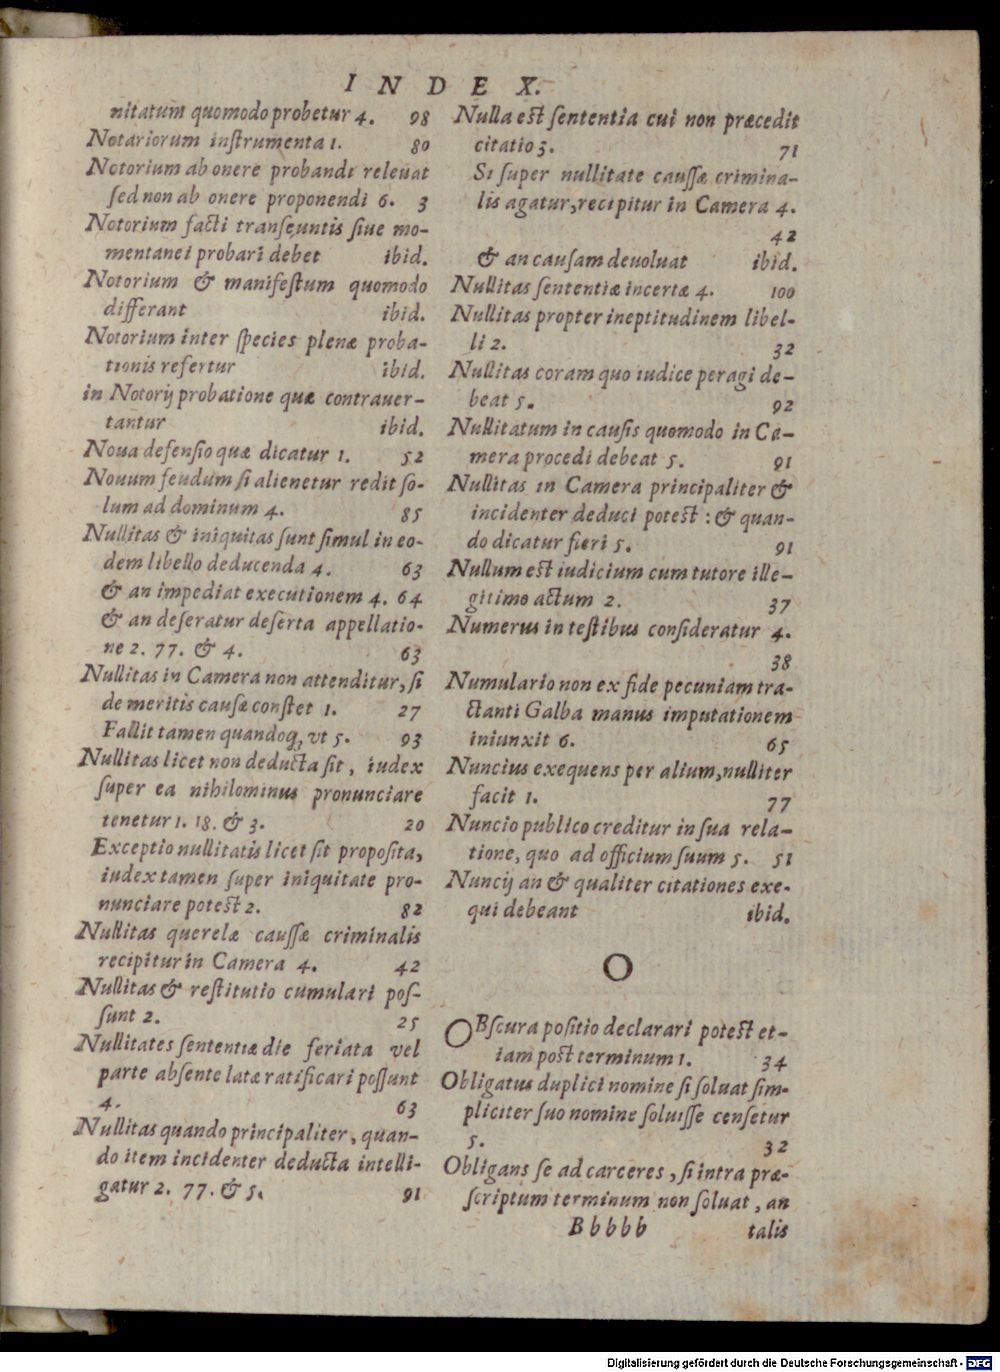 INDEX.
nitatum quomodo probetur 4. 98
Notariorum inſtrumenta 1. 80
Notorium ab onere probandi releuat
ſed non ab onere proponendi 6. 3
Notorium facti tranſeuntis ſiue mo-
mentanei probari debet ibid.
Notorium & manifeſtum quomodo
differant ibid.
Notorium inter ſpecies plenæ proba-
tionis refertur ibid.
in Notorij probatione quæ contrauer-
tantur ibid.
Noua defenſio quæ dicatur 1. 52
Nouum feudum ſi alienetur redit ſo-
lum ad dominum 4. 85
Nullitas & iniquitas ſunt ſimul in eo-
dem libello deducenda 4. 63
& an impediat executionem 4. 64
& an deferatur deſerta appellatio-
ne 2. 77. & 4. 63
Nullitas in Camera non attenditur, ſi
de meritis cauſæ conſtet 1. 27
Fallit tamen quandoq, vt 5. 93
Nullitas licet non deducta ſit, iudex
ſuper ea nihilominus pronunciare
tenetur 1. 18. & 3. 20
Exceptio nullitatis licet ſit propoſita,
iudex tamen ſuper iniquitate pro-
nunciare poteſt 2. 82
Nullitas querelæ cauſſæ criminalis
recipitur in Camera 4. 42
Nullitas & reſtitutio cumulari poſ-
ſunt 2. 25
Nullitates ſententiæ die feriata vel
parte abſente latæ ratificari poſſunt
4. 63
Nullitas quando principaliter, quan-
do item incidenter deducta intelli-
gatur 2. 77. & 5. 91
Nulla eſt ſententia cui non præcedit
citatio 3. 71
Si ſuper nullitate cauſſæ crimina-
lis agatur, recipitur in Camera 4.
42
& an cauſam deuoluat ibid.
Nullitas ſententiæ incertæ 4. 100
Nullitas propter ineptitudinem libel-
li 2. 32
Nullitas coram quo iudice peragi de-
beat 5. 92
Nullitatum in cauſis quomodo in Ca-
mera procedi debeat 5. 91
Nullitas in Camera principaliter &
incidenter deduci poteſt : & quan-
do dicatur fieri 5. 91
Nullum eſt iudicium cum tutore ille-
gitimo actum 2. 37
Numerus in teſtibus conſideratur 4.
38
Numulario non ex fide pecuniam tra-
ctanti Galba manus imputationem
iniunxit 6. 65
Nuncius exequens per alium, nulliter
facit 1. 77
Nuncio publico creditur in ſua rela-
tione, quo ad officium ſuum 5. 51
Nuncij an & qualiter citationes exe-
qui debeant ibid.
O
OBſcura poſitio declarari poteſt et-
iam poſt terminum 1. 34
Obligatus duplici nomine ſi ſoluat ſim-
pliciter ſuo nomine ſoluiſſe cenſetur
5. 32
Obligans ſe ad carceres, ſi intra præ-
ſcriptum terminum non ſoluat, an
Bbbbb talis
Digitalisierung gefördert durch die Deutsche Forschungsgemeinschaft - DFG